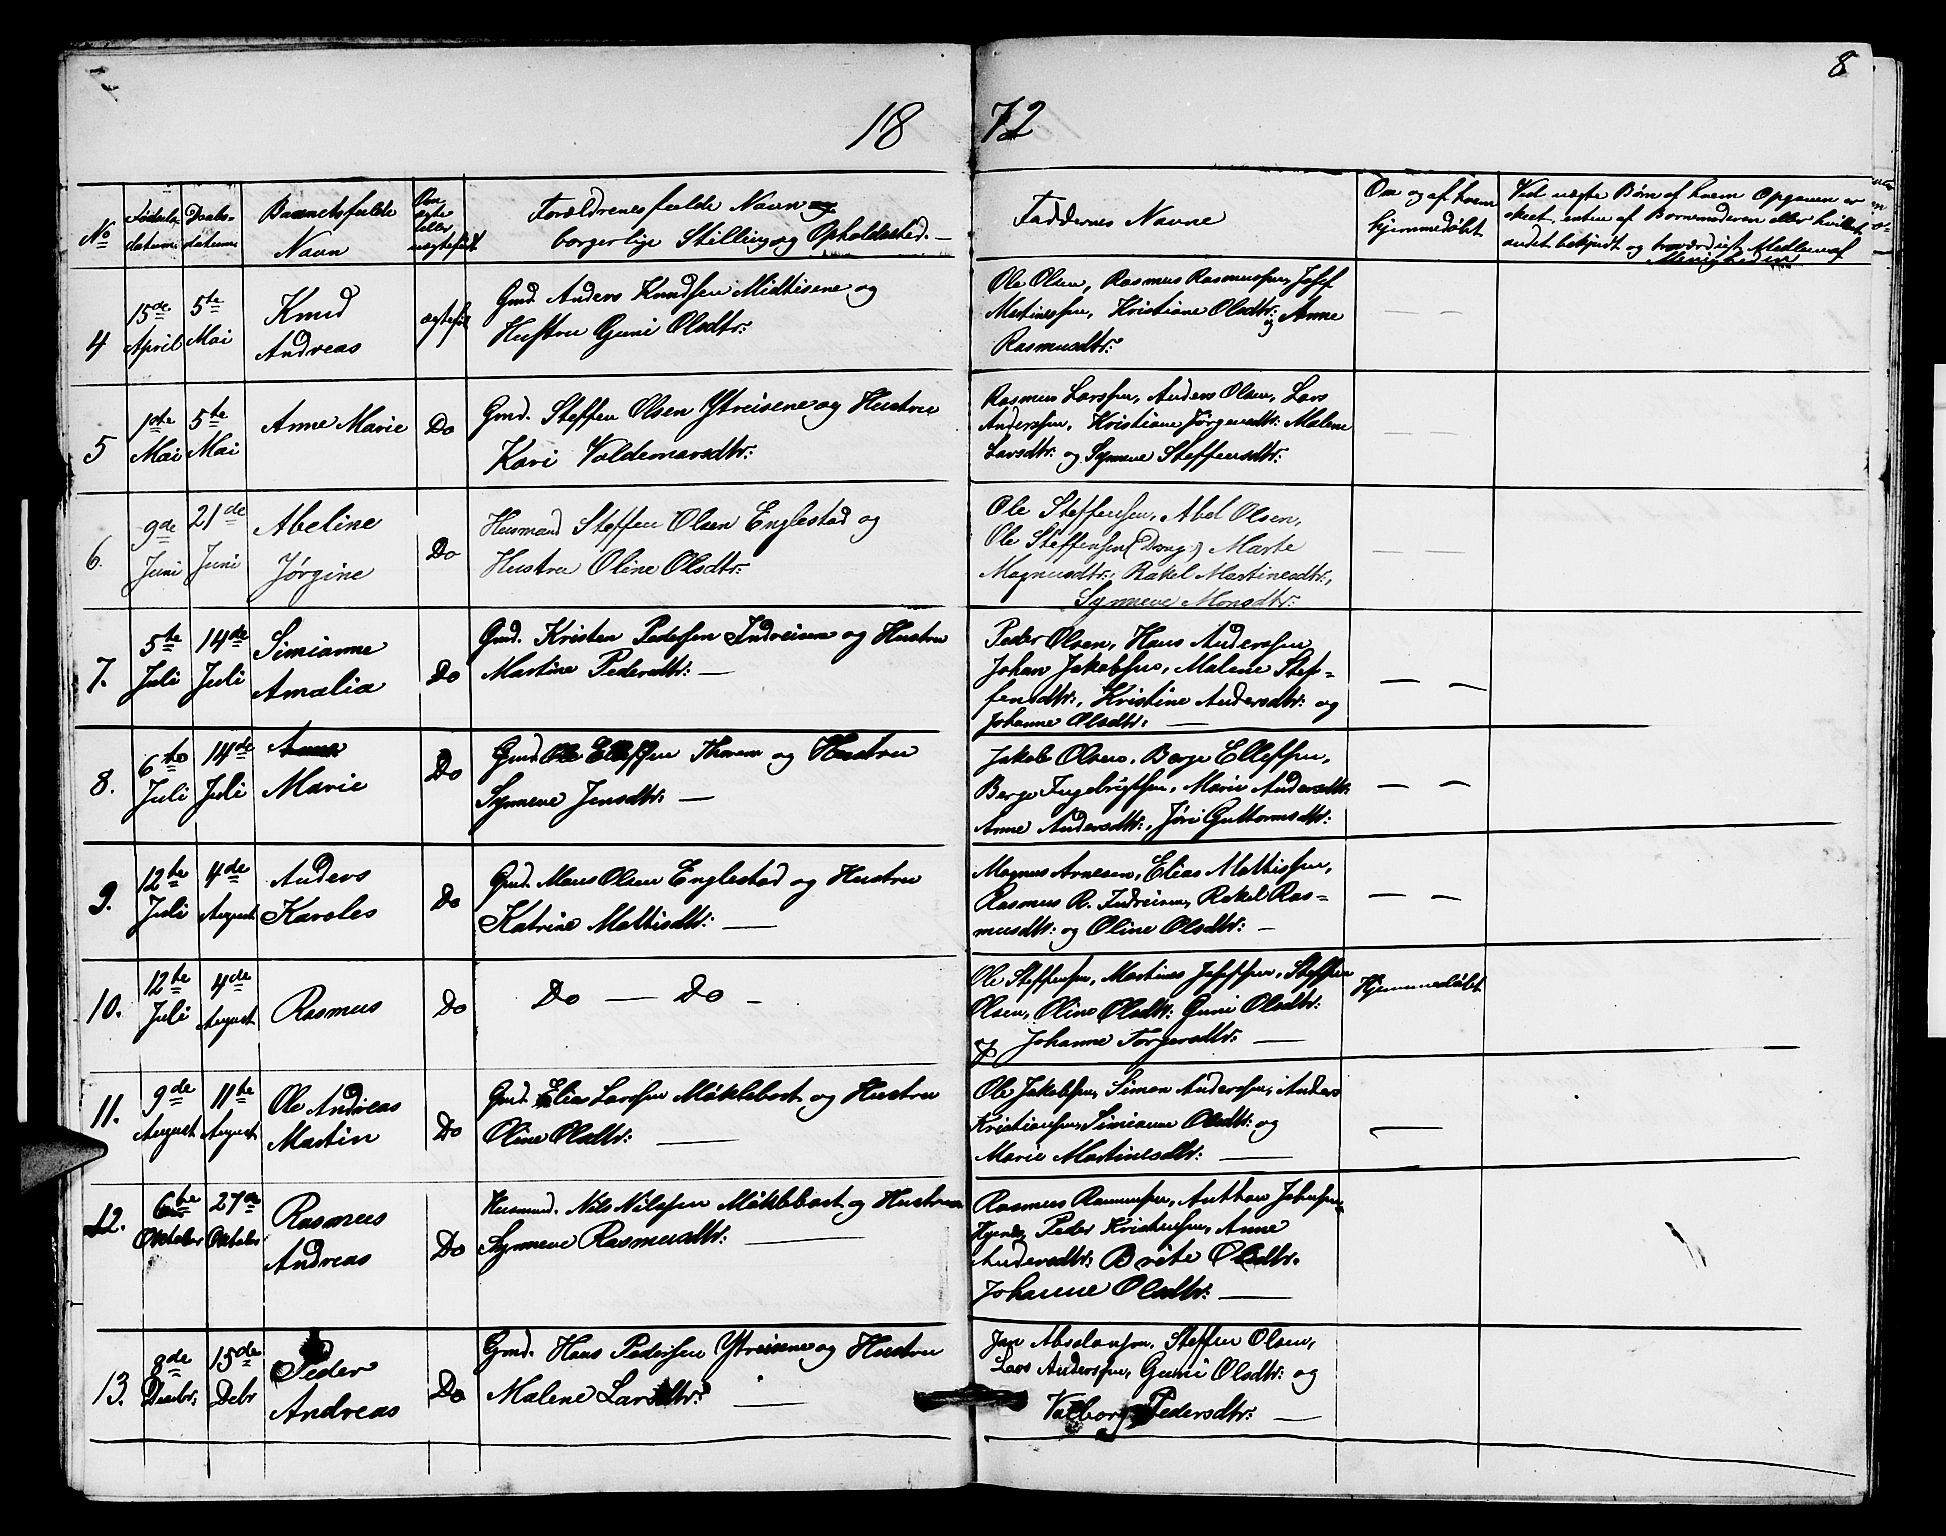 8
18 72
No
Fødsels-
datum
Daabs-
datum
Barnets fulde
Navn
Om
ægte
eller
uægtefødt
Forældrenes fulde Navn og
borgerlige Stilling og Opholdssted. —
Faddernes Navne
Om og af hvem
hjemmedøbt
Ved uægte Børn af hvem Opgaven er
skeet, enten af Barnemoderen eller hvilket
andet bekjendt og troværdigt Medlem af
Menigheden
4
15de April
5te Mai
Knud
Andreas
ægtefød
Gmd. Anders Knudsen Midtisene og
Hustru Guni Olsdtr:
Ole Olsen, Rasmus Rasmussen, Josef
Martinssen, Kristiane Olsdtr: og Anne
Rasmusdtr:
— —
5
1ste Mai
5te Mai
Anne Marie
Do
Gmd. Steffen Olsen Ytreisene og Hustru
Kari Valdemarsdtr:
Rasmus Larssen, Anders Olsen, Lars
Anderssen, Kristiane Jørgensdtr: Malene
Larsdtr: og Synneve Steffensdtr:
— —
6.
9de Juni
21de Juni
Abeline
Jørgine
Do
Husmand Steffen Olsen Englestad og
Hustru Oline Olsdtr:
Ole Steffensen, Abel Olsen,
Ole Steffensen (Dreng) Marte
Magnusdtr: Rakel Martinesdtr:,
Synneve Monsdtr:
— —
7.
5te Juli
14de Juli
Simianne
Amalia
Do
Gmd. Kristen Pedersen Indreisene og Hustru
Martine Pedersdtr: —
Peder Olsen, Hans Anderssen,
Johan Jakobsen, Malene Stef-
fensdtr:, Kristine Andersdtr: og
Johanne Olsdtr: —
— —
8.
6te Juli
14de Juli
Anna
Marie
Do
Gmd. Ole Ellefsen Thoresen og Hustru
Synneve Jensdtr: —
Jakob Olsen, Berge Ellefsen,
Berge Ingebrigtsen, Marie Andersdtr:
Anne Andersdtr:, Jøri Guttormsdtr:
— —
9.
12te Juli
4de August
Anders
Karoles
Do
Gmd. Mons Olsen Englestad og Hustru
Katrine Mattisdtr: —
Magnus Arnesen, Elias Mattissen,
Rasmus R. Indreisene, Rakel Ras-
musdtr: og Oline Olsdtr: —
— —
10.
12te Juli
4de August
Rasmus
Do
Do — Do —
Ole Steffensen, Martines Josefsen, Steffen
Olsen, Oline Olsdtr: Guni Olsdtr:
og Johanne Torgersdtr: —
Hjemmedøbt
11.
9de August
11te August
Ole Andreas
Martin
Do
Gmd. Elias Larssen Møklebost og Hustru
Oline Olsdtr: —
Ole Jakobsen, Simon Anderssen, Anders
Kristianssen, Simianne Olsdtr: og
Marie Martinesdtr: —
—
12.
6te Oktober
27de Oktober
Rasmus
Andreas
Do
Husmnd. Nils Nilssen Møklebost og Hustru
Synneve Rasmusdtr: —
Rasmus Rasmussen, Anthon Johnsen
Peder Kristensen, Anne
Andersdtr: Brite Olsdtr.
Johanne Olsdtr: —
13.
8de Decbr:
15de Debr
Peder
Andreas
Do
Gmd. Hans Pedersen Ytreisene og Hustru
Malene Larsdtr: —
Jan Absalonsen, Steffen Olsen,
Lars Anderssen, Guni Olsdtr: og
Valborg Pedersdtr: —